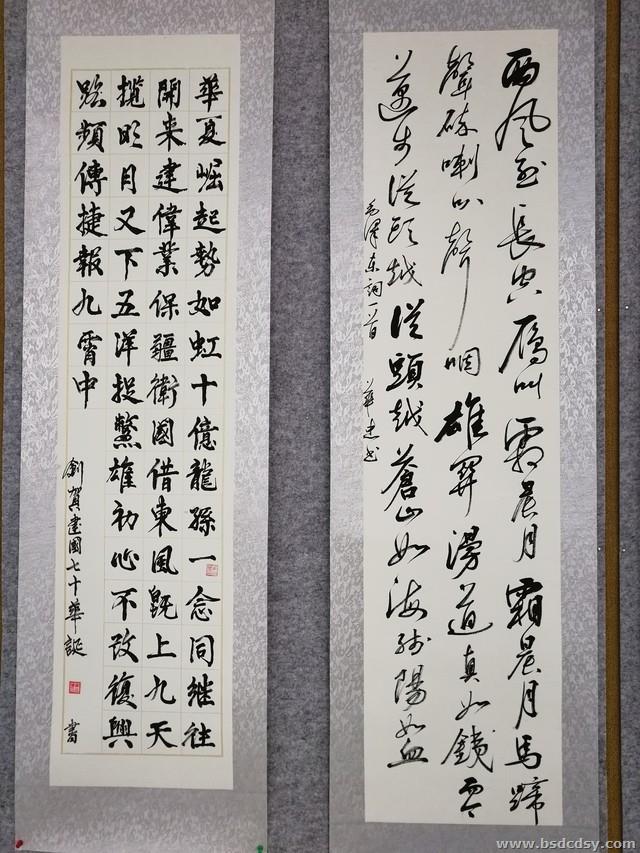 西风烈長空雁叫霜晨月霜晨月馬蹄
聲碎喇叭聲咽雄関漫道真如鐵而今
邁步從頭越從頭越蒼山如海残陽如血
毛澤東词一首 華忠书
華夏崛起勢如虹十億龍孫一念同継往
開来建偉業保疆衛國借東風既上九天
攬明月又下五洋捉鱉雄初心不改復興
路頻傳捷報九霄中
創賀建國七十華誕 書
www.bsdcdsy.com